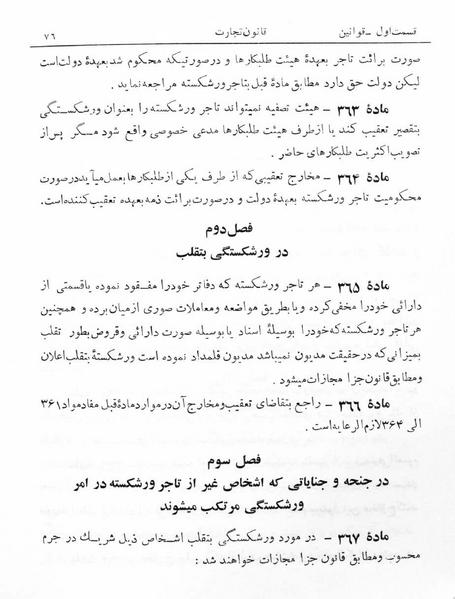 قسمت اول - قوانین قانون تجارت ۷۶
صورت برائت تاجر بعهدهٔ هیئت طلبکارها و درصورتیکه محکوم شد بعهدهٔ دولت است
لیکن دولت حق دارد مطابق مادهٔ قبل بتاجر ورشکسته مراجعه نماید .
مادهٔ ۳۶۳ - هیئت تصفیه نمیتواند تاجر ورشکسته را بعنوان ورشکستگی
بتقصیر تعقیب کند یا از طرف هیئت طلبکارها مدعی خصوصی واقع شود مگر پس از
تصویب اکثریت طلبکارهای حاضر .
مادهٔ ۳۶۴ - مخارج تعقیبی که از طرف یکی از طلبکارها بعمل میآید درصورت
محکومیت تاجر ورشکسته بعهدهٔ دولت و درصورت برائت ذمه بعهده تعقیب کننده است.
فصل دوم
در ورشکستگی بتقلب
مادهٔ ۳۶۵ - هر تاجر ورشکسته که دفاتر خودرا مفقود نموده یا قسمتی از
دارائی خودرا مخفی کرده و یا بطریق مواضعه و معاملات صوری از میان برده و همچنین
هر تاجر ورشکسته که خودرا بوسیلهٔ اسناد یا بوسیله صورت دارائی و قروض بطور تقلب
بمیزانی که در حقیقت مدیون نمیباشد مدیون قلمداد نموده است ورشکستهٔ بتقلب اعلان
و مطابق قانون جزا مجازات میشود .
مادهٔ ۳۶۶ - راجع بتقاضای تعقیب و مخارج آن در موارد مادهٔ قبل مفاد مواد ۳۶۱
الی ۳۶۴ لازم الرعایه است .
فصل سوم
در جنحه و جنایاتی که اشخاص غیر از تاجر ورشکسته در امر
ورشکستگی مرتکب میشوند
مادهٔ ۳۶۷ - در مورد ورشکستگی بتقلب اشخاص ذیل شریک در جرم
محسوب و مطابق قانون جزا مجازات خواهند شد :